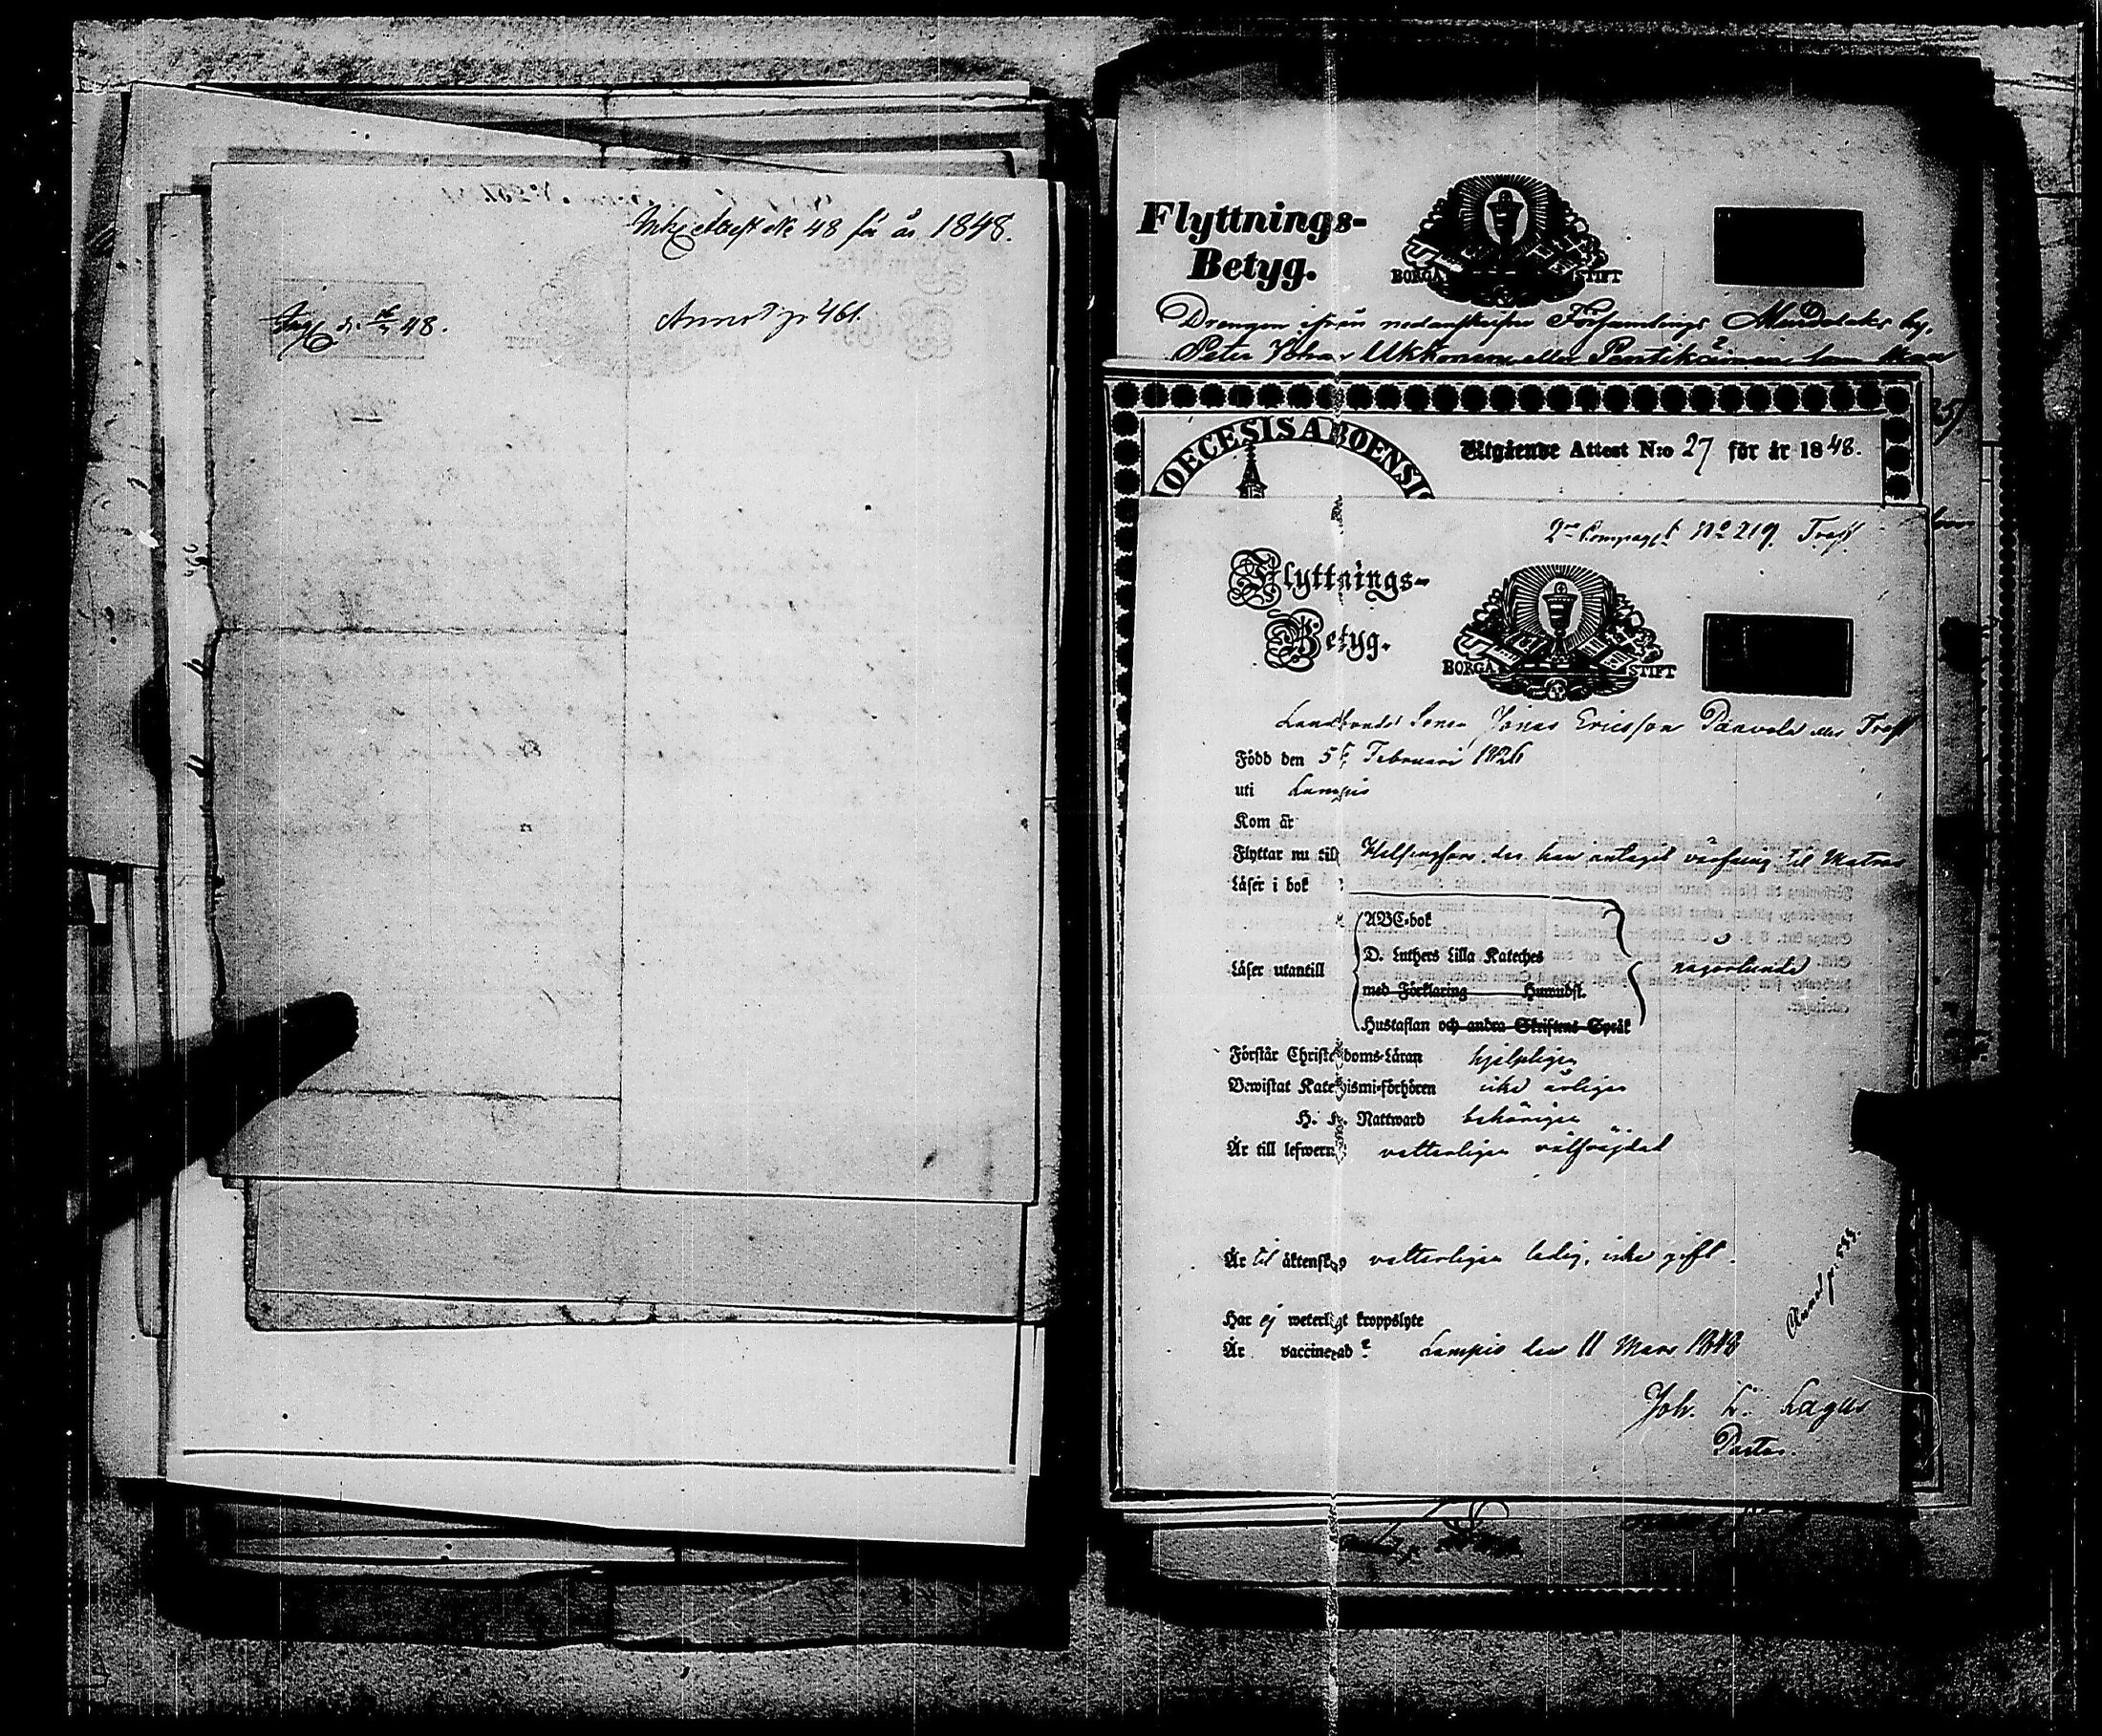 attest No 48 för år 1848.
48.
Annot p. 461.
Flyttnings-
Betyg.
BORGÅ STIFT
Drengen ifrån nedanskrifne Församlings by,
Peter Johan Ukkonen eller Pentikäinen som
DIOECESIS ABOENSIS
Utgående Attest N:o 27 för år 1848.
2 Compagt No 219. Trast
Flyttnings-
Betyg.
BORGÅ STIFT
Landbonde Sonen Jonas Ericsson Paavola eller Trast
Född den 5 Februari 1826
uti Lampis
Kom år
Flyttar nu till Helsingfors, der han antagit värfning til Matros
Läser i bok
ABC-bok
D. Luthers Lilla Kateches
Läser utantill någorlunda
med Förklaring Hufwudst.
Hustaflan och andra Skriftens Språk
Förstår Christendoms-Läran hjelpligen
Bewistat Katechismi-förhören icke årligen
H. H. Nattward behörigen
Är till lefwerne vetterligen välfrejdad
Är til äktenskap vetterligen ledig, icke gift.
Har ej weterligt kroppslyte
Är vaccinerad? Lampis den 11 Mars 1848
Annot p. 533.
Joh. L. Lagus
Pastor.